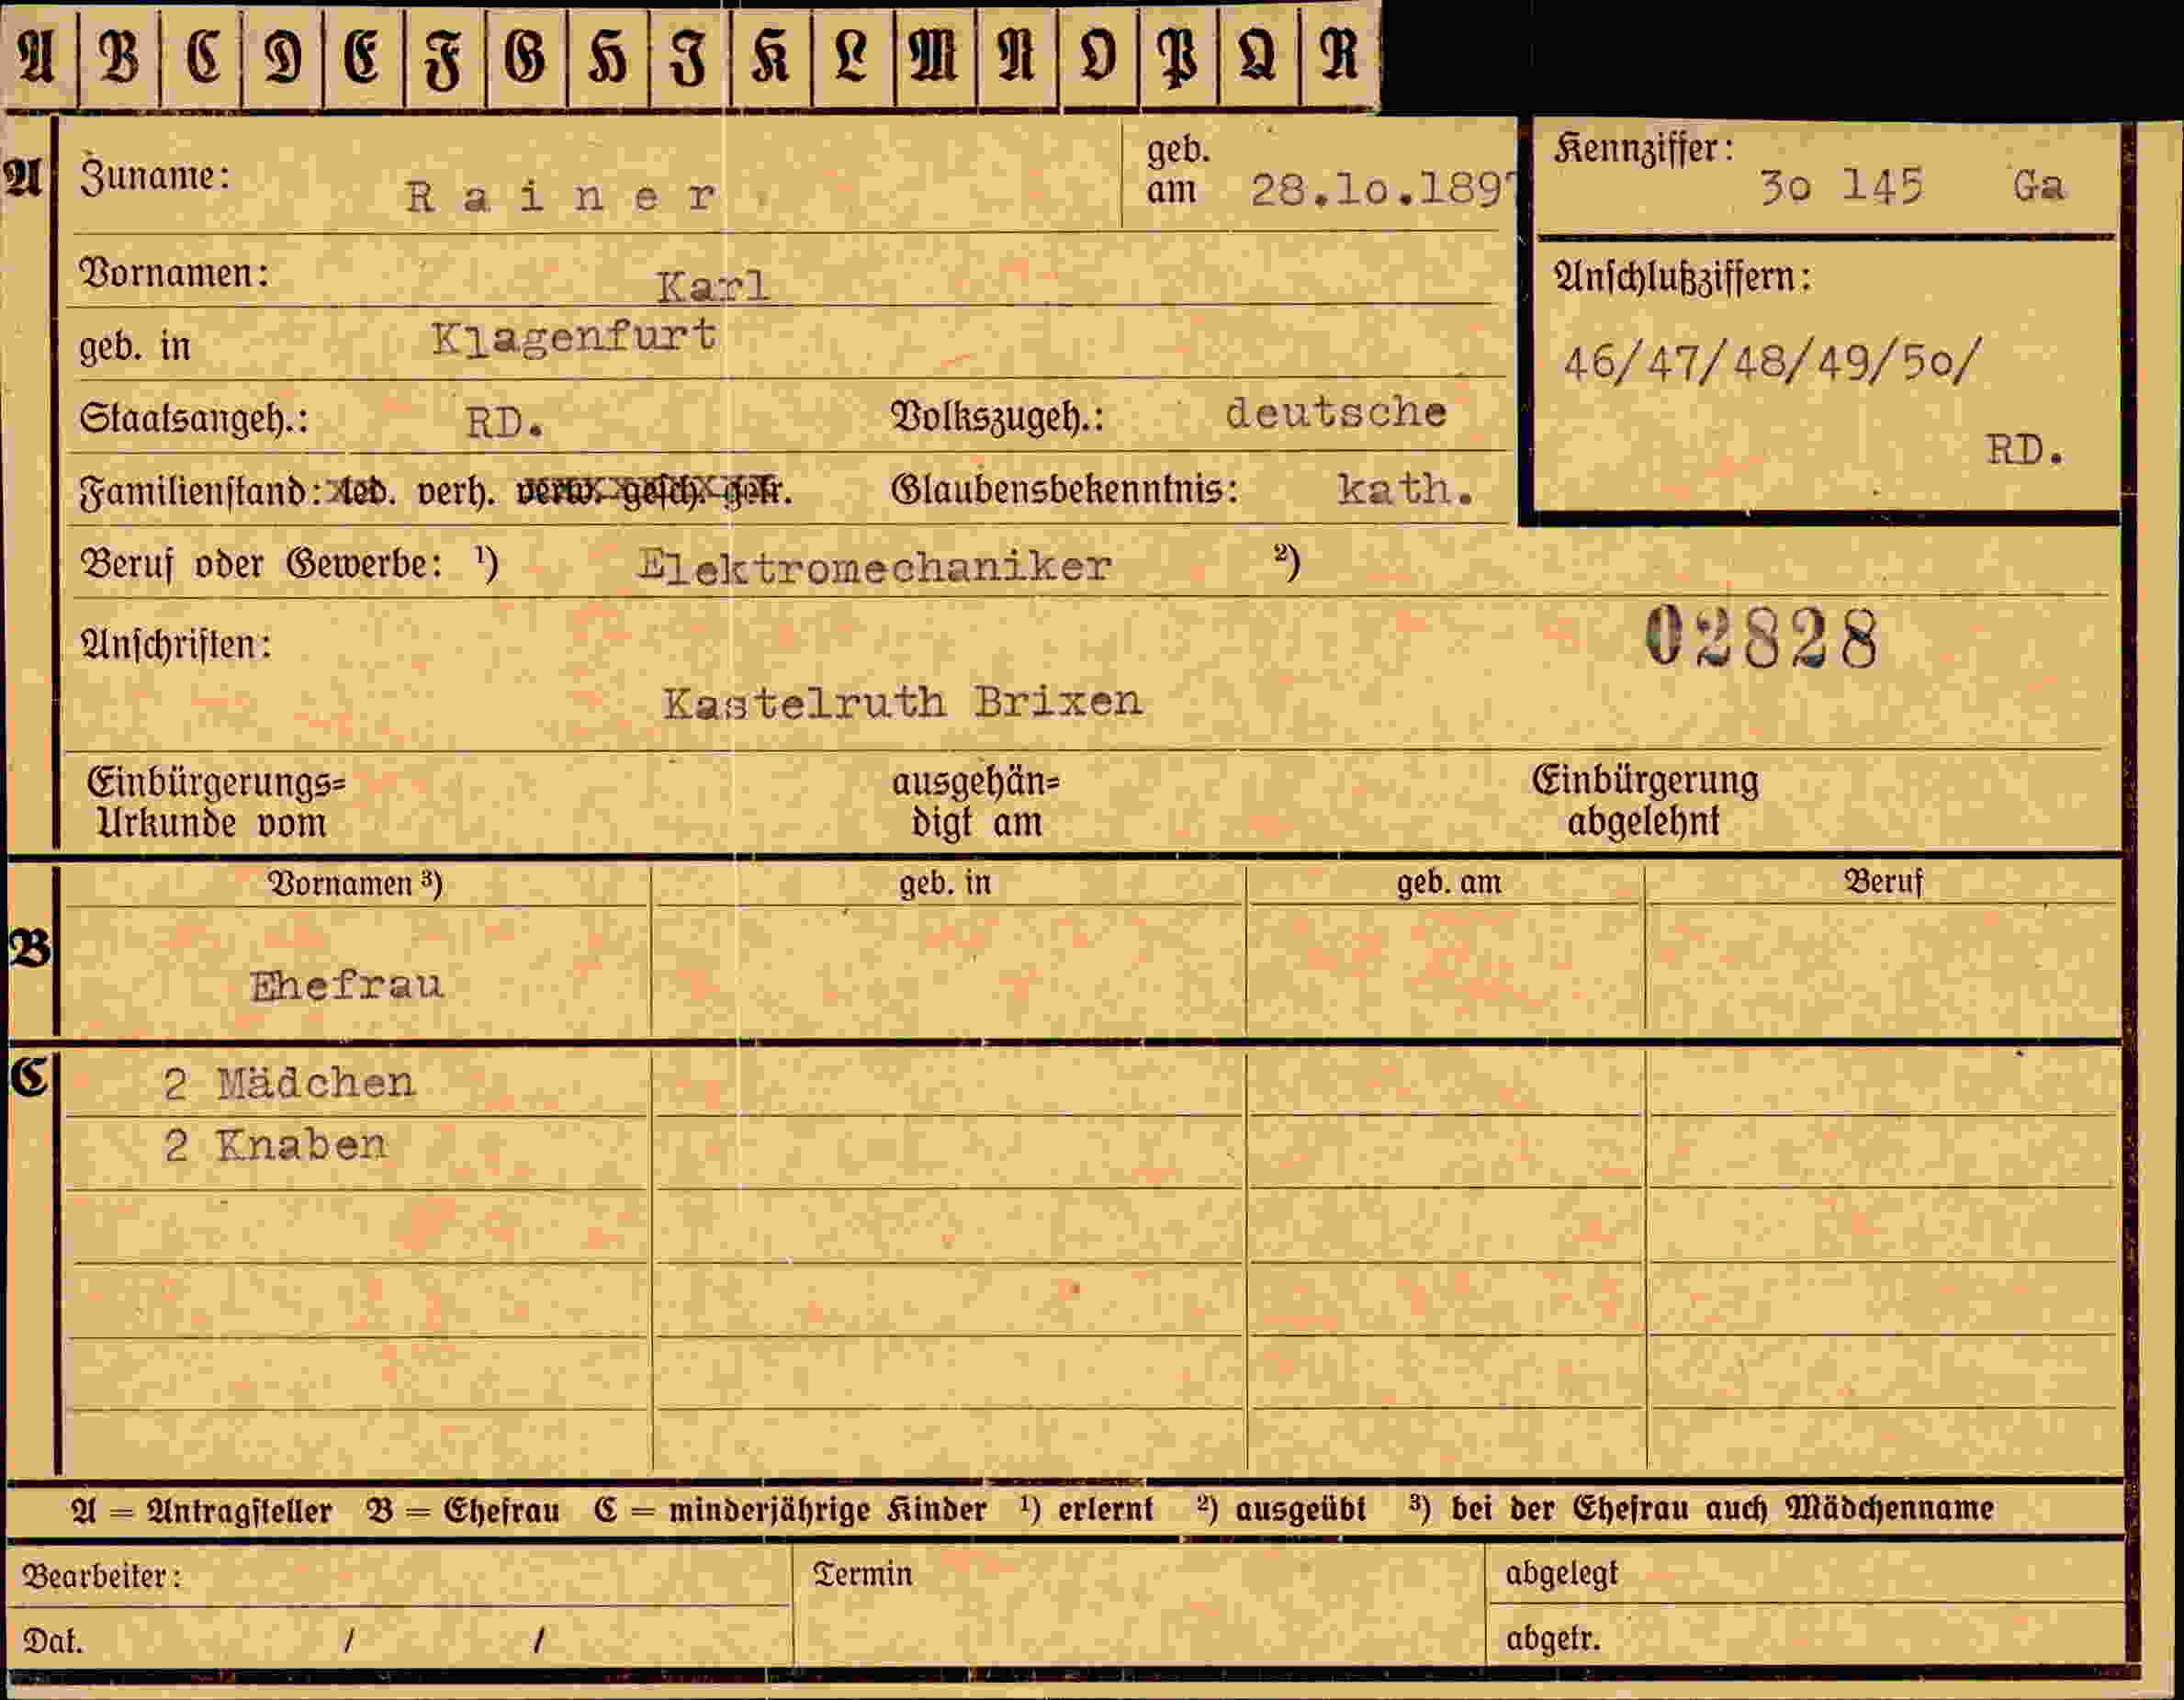 A B C D E F G H I K L M N O P Q R
A Zuname: Rainer geb. am 28.10.1897
Kennziffer: 30 145 Ga
Vornamen: Karl
geb. in Klagenfurt
Anschlußziffern:
46/47/48/49/50/
RD.
Staatsangeh.: RD. Volkszugeh.: deutsche
Familienstand: led. verh. verw. gesch. getr. Glaubensbekenntnis: kath.
Beruf oder Gewerbe: ¹) Elektromechaniker ²)
Anschriften: 02828
Kastelruth Brixen
Einbürgerungs= ausgehän= Einbürgerung
Urkunde vom digt am abgelehnt
Vornamen ³) geb. in geb. am Beruf
B Ehefrau
C 2 Mädchen
2 Knaben
A = Antragsteller B = Ehefrau C = minderjährige Kinder ¹) erlernt ²) ausgeübt ³) bei der Ehefrau auch Mädchenname
Bearbeiter: Termin abgelegt
Dat. / / abgetr.